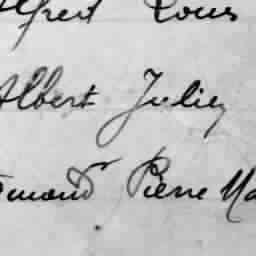 Alfred Louis
Albert Julien
Edmond Pierre Ma